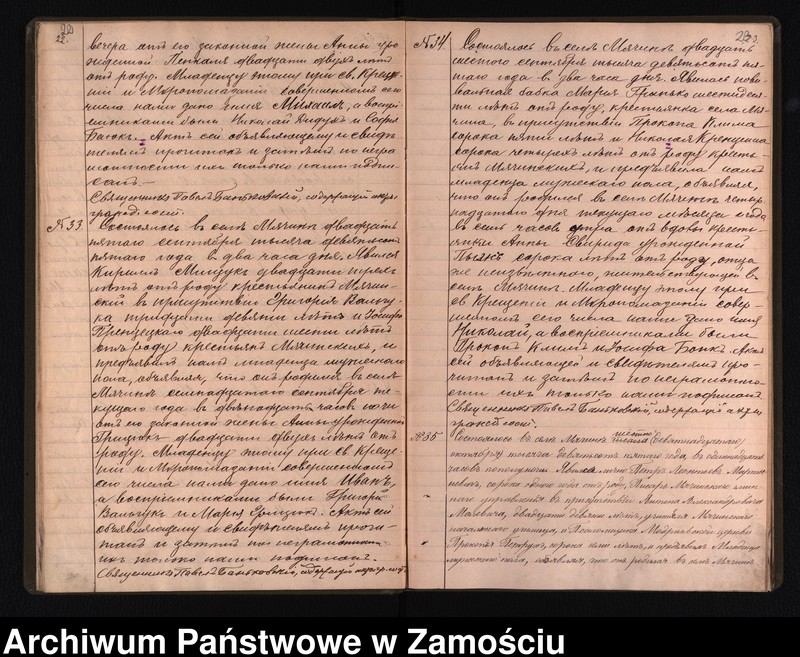 22.
вечера отъ его законной жены Анны уро
жденной Пенкаля двадцати двухъ лѣтъ
отъ роду. Младенцу этому при св. Креще
ніи и Мѵропомазаніи совершенномъ сего
числа нами дано имя Михаилъ, а воспрі
емниками были Николай и Софія
Актъ сей объявляющему и свидѣ
телямъ прочитанъ и затѣмъ по негра
мотности ихъ только нами подпи
санъ.—
Священникъ Павелъ Баньковскій, содержащій акты
гражд. сост.
№33.
Состоялось въ селѣ Мячинѣ двадцать
пятаго сентября тысяча девятьсотъ
пятаго года въ два часа дня. Явился
Кириллъ Мищукъ двадцати трехъ
лѣтъ отъ роду крестьянинъ Мячин-
скій въ присутствіи Григорія Вальчу-
ка тридцати девяти лѣтъ и Іосифа
двадцати шести лѣтъ
отъ роду крестьянъ Мячинскихъ, и
предъявилъ намъ младенца мужескаго
пола, объявляя, что онъ родился въ селѣ
Мячинѣ семнадцатаго сентября те-
кущаго года въ двѣнадцать часовъ ночи
отъ его законной жены Анны урожденной
Грицюкъ двадцати двухъ лѣтъ отъ
роду. Младенцу этому при св. Креще-
ніи и Мѵропомазаніи совершенномъ
сего числа нами дано имя Иванъ,
а воспріемниками были Григорій
Вальчукъ и Марія Грицюкъ. Актъ сей
объявляющему и свидѣтелямъ прочи-
танъ и затѣмъ по неграмотности
ихъ только нами подписанъ.
Священникъ Павелъ Баньковскій, содержащій акты гр. сост.
23.
№34.
Состоялось въ селѣ Мячинѣ двадцать
шестого сентября тысяча девятьсотъ пя-
таго года въ два часа дня. Явилась пови-
вальная бабка Марія шестидеся-
ти лѣтъ отъ роду, крестьянка села Мя-
чина, въ присутствіи Прокопа Клима
сорока пяти лѣтъ и Николая
сорока четырехъ лѣтъ отъ роду кресть-
янъ Мячинскихъ и предъявила намъ
младенца мужескаго пола, объявляя,
что онъ родился въ селѣ Мячинѣ четыр-
надцатаго дня текущаго мѣсяца и года
въ семь часовъ утра отъ вдовы кресть-
янки Анны Свирида урожденной
сорока лѣтъ отъ роду, отца
же неизвѣстнаго, жительствующей въ
селѣ Мячинѣ. Младенцу этому при
св Крещеніи и Мѵропомазаніи совер-
шенномъ сего числа нами дано имя
Николай, а воспріемниками были
Прокопъ Климъ и Іосифа Актъ
сей объявляющей и свидѣтелямъ про-
читанъ и затѣмъ по неграмотно-
сти ихъ только нами подписанъ
Священникъ Павелъ Баньковскій, содержащій акты
гражд. сост.
№35
Состоялось въ селѣ Мячинѣ девятнадцатаго
октября тысяча девятьсотъ пятаго года въ
часовъ пополудни. Явился лично Петръ Леонтьевъ
сорока одного года отъ роду, Писарь Мячинскаго гмин-
наго управленія въ присутствіи Антона Александровича
двадцати девяти лѣтъ, учителя Мячинскаго
начальнаго училища, и Псаломщика церкви
Прокопія сорока лѣтъ, и предъявилъ Младенца
мужескаго пола, объявляя, что онъ родился въ селѣ Мячинѣ
Archiwum Państwowe w Zamościu